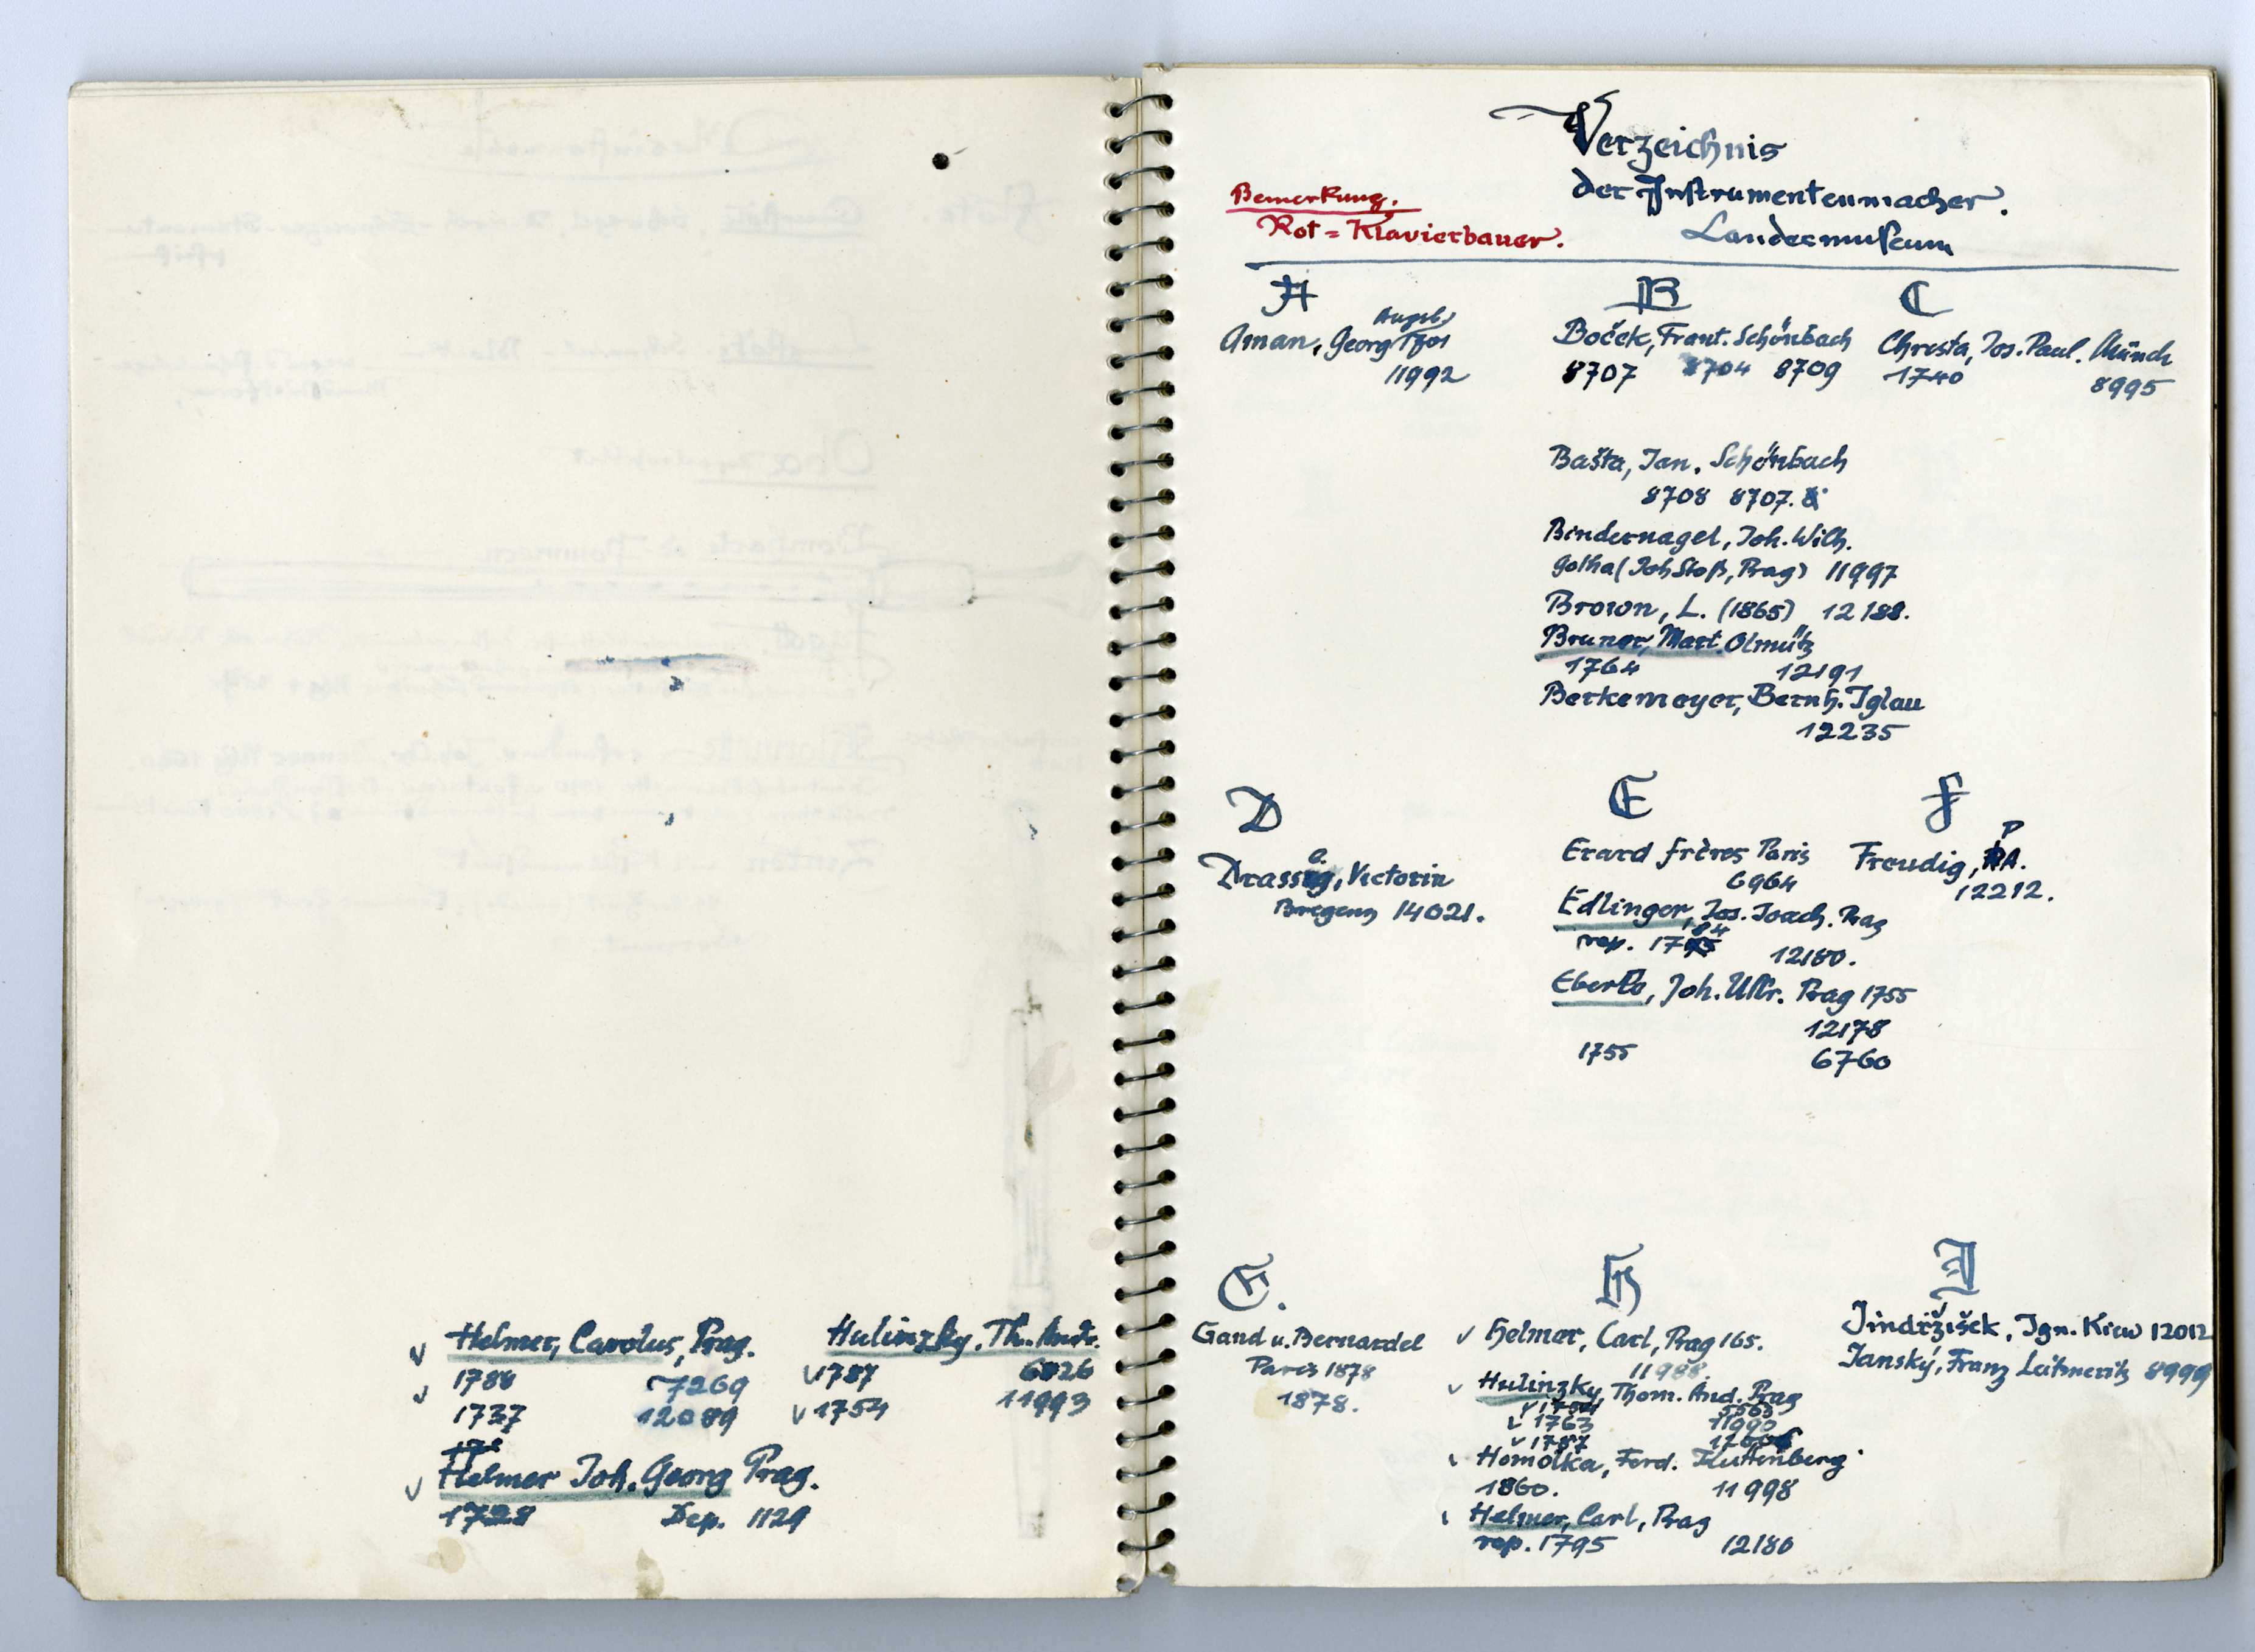 Helmer, Carolus, Prag.
1788 7269
1737 12089
Helmer Joh. Georg Prag.
1728 Dep. 1129
Hulinzky. Th. Andr.
1787 6826
1754 11993
Verzeichnis
der Instrumentenmacher.
Landesmuseum
Bemerkung.
Rot = Klavierbauer.
A
Aman, Georg Augsb.
11992
B
Boček, Frant. Schönbach
8707 8704 8709
Bašta, Jan. Schönbach
8708 8707.
Bindernagel, Joh. Wilh.
Gotha (Joh Stoß, Prag) 11997
Brown, L. (1865) 12188.
Bruner, Mart. Olmütz
1764 12191
Berkemeyer, Bernh. Iglau
12235
C
Christa, Jos. Paul. Münch
1740 8995
D
Drassegg, Victorin
Bregenz 14021.
E
Erard frères Paris
6964
Edlinger, Jos. Joach. Prag
rep. 1784 12180.
Eberle, Joh. Ullr. Prag 1755
12178
1755 6760
F
Freudig, P A.
12212.
G.
Gand u. Bernardel
Paris 1878
1878.
H
Helmer, Carl, Prag 165.
11988
Hulinzky, Thom. And. Prag
1754 5563
1763 11990
1787
Homolka, Ferd. Kuttenberg
1860. 11998
Helmer, Carl, Prag
rep. 1795 12180
J
Jindržišek, Ign. Kiew 12012
Janský, Franz Leitmeritz 8999